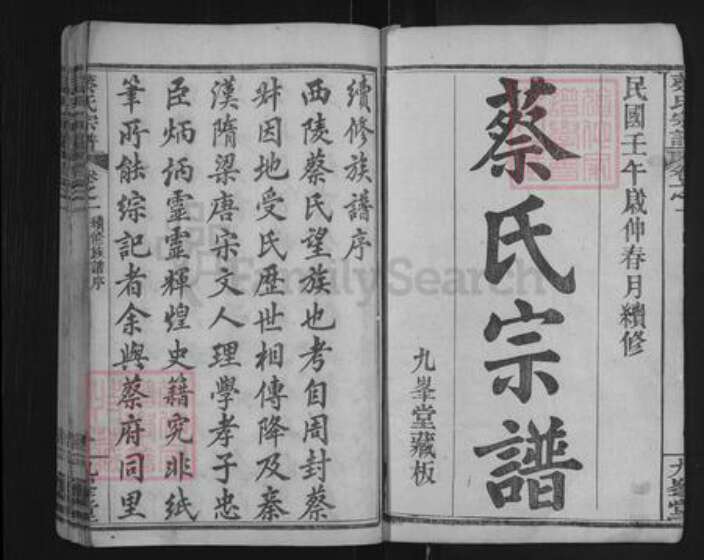 民國壬午歲仲春月續修
蔡氏宗譜
九峯堂藏板
續修族譜序
西陵蔡氏望族也考自周封蔡
叔因地受氏歷世相傳降及秦
漢隋梁唐宋文人理學孝子忠
臣炳炳靈靈輝煌史籍究非紙
筆所能綜記者余與蔡府同里
蔡氏宗譜
卷之一
續修族譜序
九峯堂
FamilySearch